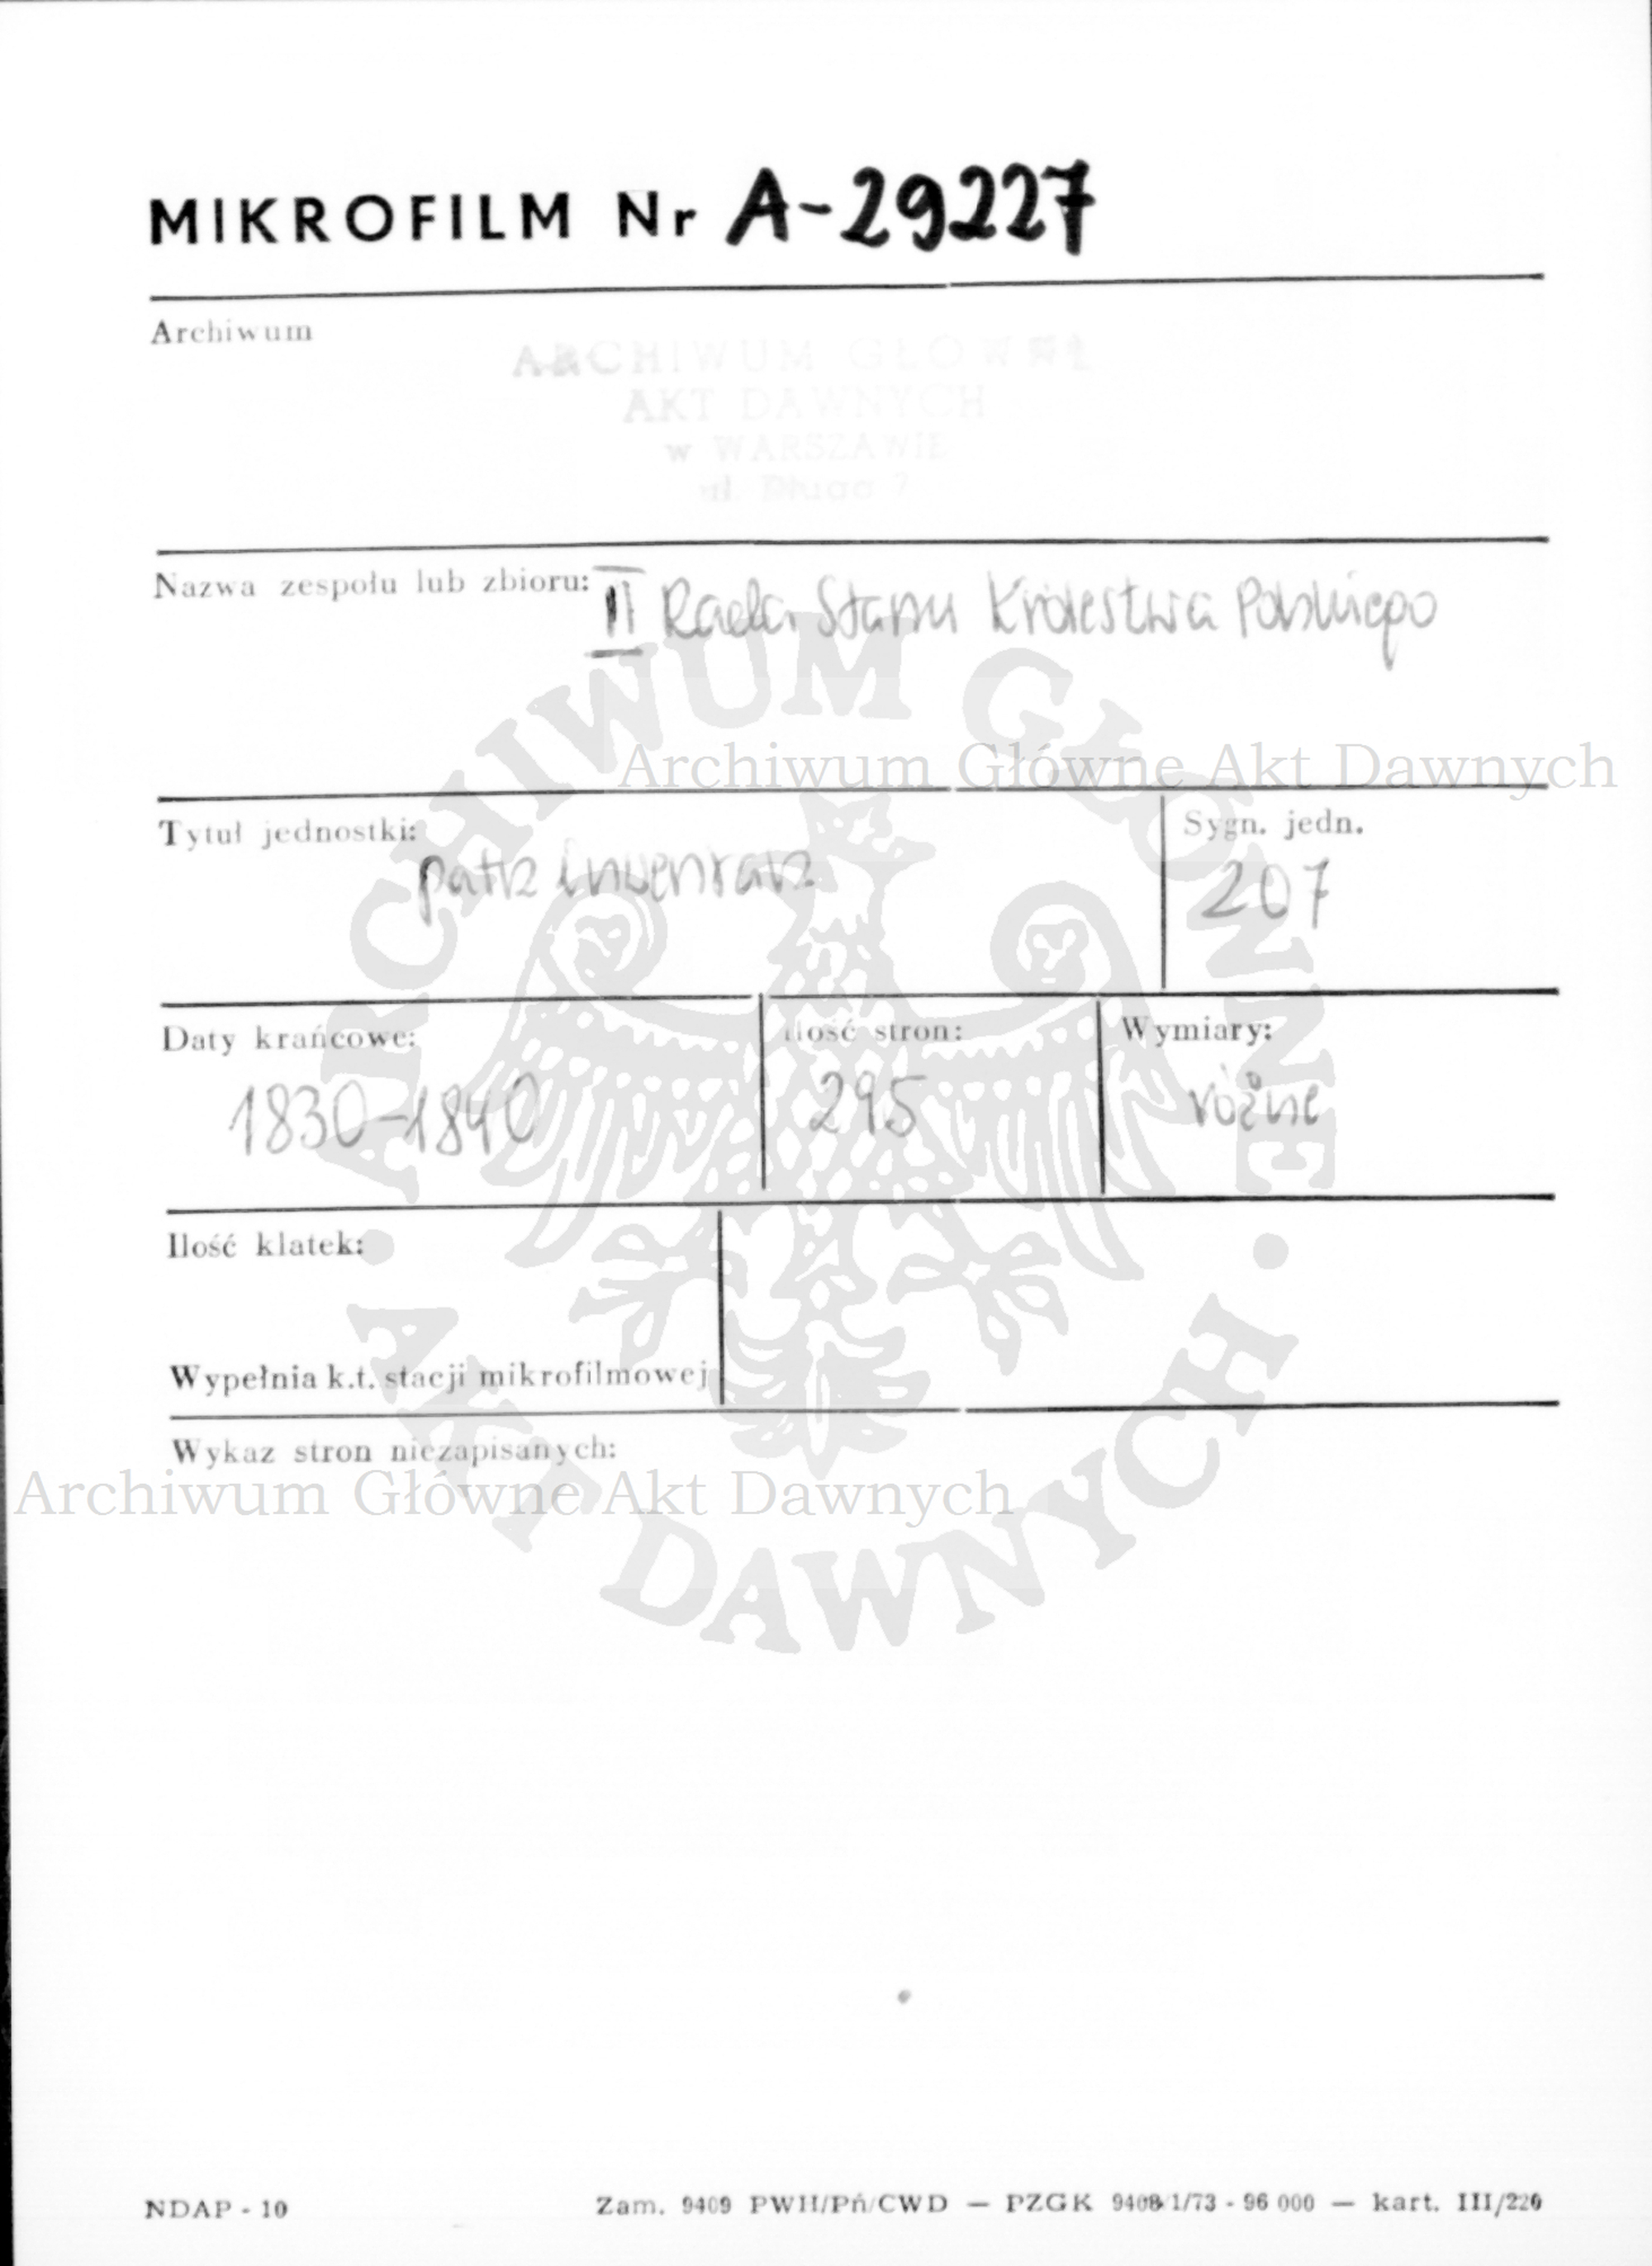 MIKROFILM Nr A-29227
Archiwum
ARCHIWUM GŁÓWNE
AKT DAWNYCH
w WARSZAWIE
ul. Długa 7
Nazwa zespołu lub zbioru: II Rada Stanu Królestwa Polskiego
Archiwum Główne Akt Dawnych
Tytuł jednostki: patrz inwentarz
Sygn. jedn.
207
Daty krańcowe:
1830-1840
Ilość stron:
295
Wymiary:
różne
Ilość klatek:
Wypełnia k.t. stacji mikrofilmowej
Wykaz stron niezapisanych:
Archiwum Główne Akt Dawnych
ARCHIWUM GŁÓWNE
• AKT DAWNYCH •
NDAP - 10
Zam. 9409 PWH/Pń/CWD — PZGK 9408/1/73 - 96 000 — kart. III/220